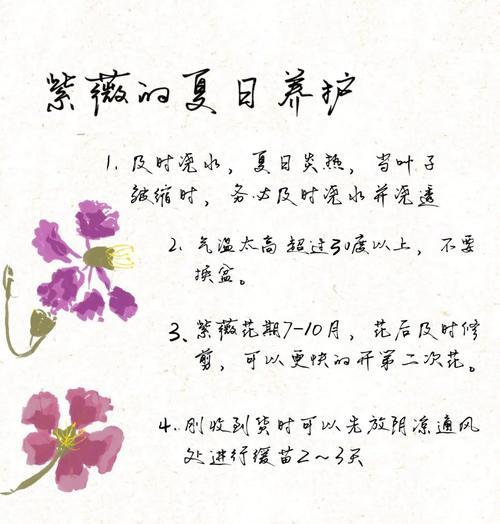 紫薇的夏日养护
1. 及时浇水，夏日炎热，当叶子
皱缩时，务必及时浇水并浇透
2. 气温太高超过30度以上，不要
换盆。
3、紫薇花期7-10月，花后及时修
剪，可以更快的开第二次花。
4、刚收到货时可以先放阴凉通风
处进行缓苗2~3天